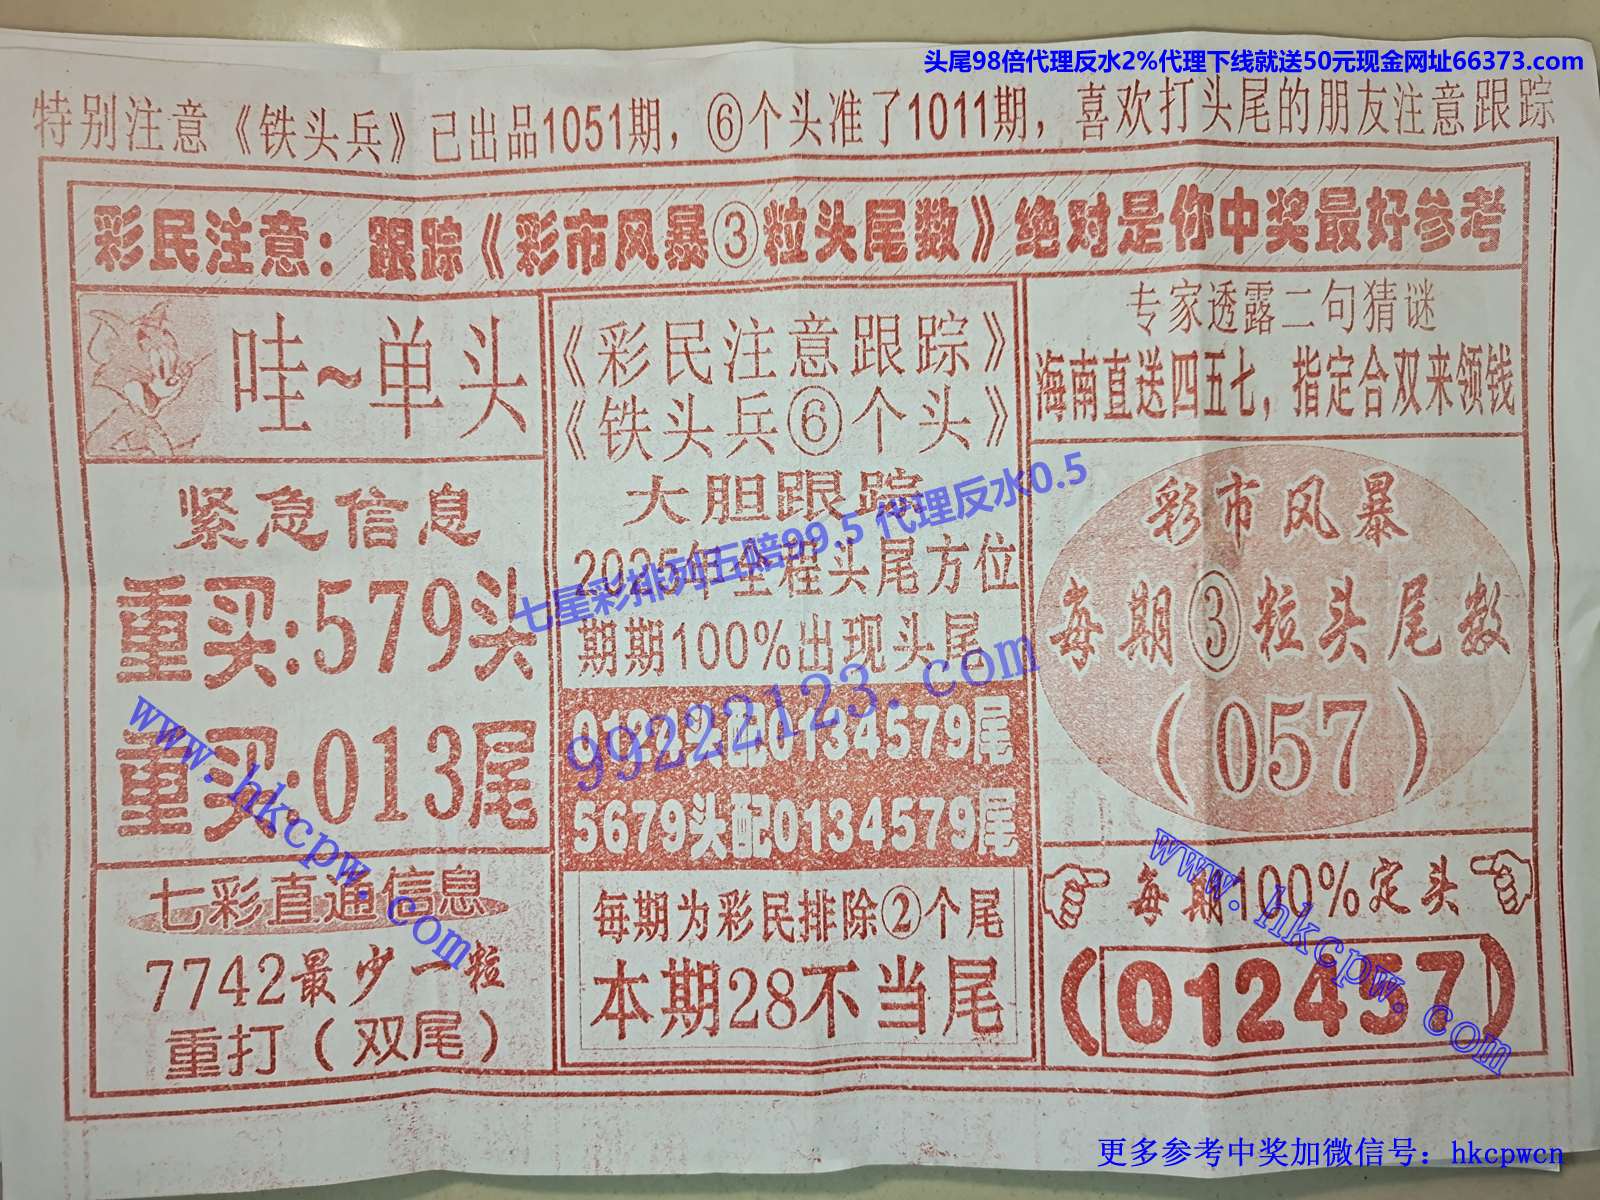 头尾98倍代理反水2%代理下线就送50元现金网址66373.com
特别注意《铁头兵》己出品1051期，⑥个头准了1011期，喜欢打头尾的朋友注意跟踪
彩民注意：跟踪《彩市风暴③粒头尾数》绝对是你中奖最好参考
哇~单头
紧急信息
重买:579头
重买:013尾
七彩直通信息
7742最少一粒
重打（双尾）
《彩民注意跟踪》
《铁头兵⑥个头》
大胆跟踪
2025年全程头尾方位
期期100%出现头尾
配0134579尾
5679头配0134579尾
每期为彩民排除②个尾
本期28不当尾
专家透露二句猜谜
海南直送四五七，指定合双来领钱
彩市风暴
每期③粒头尾数
（057）
每期100%定头
（012457）
七星彩排列五赔99.5 代理反水0.5
99222123.com
www.hkcpw.com
www.hkcpw.com
更多参考中奖加微信号：hkcpwcn